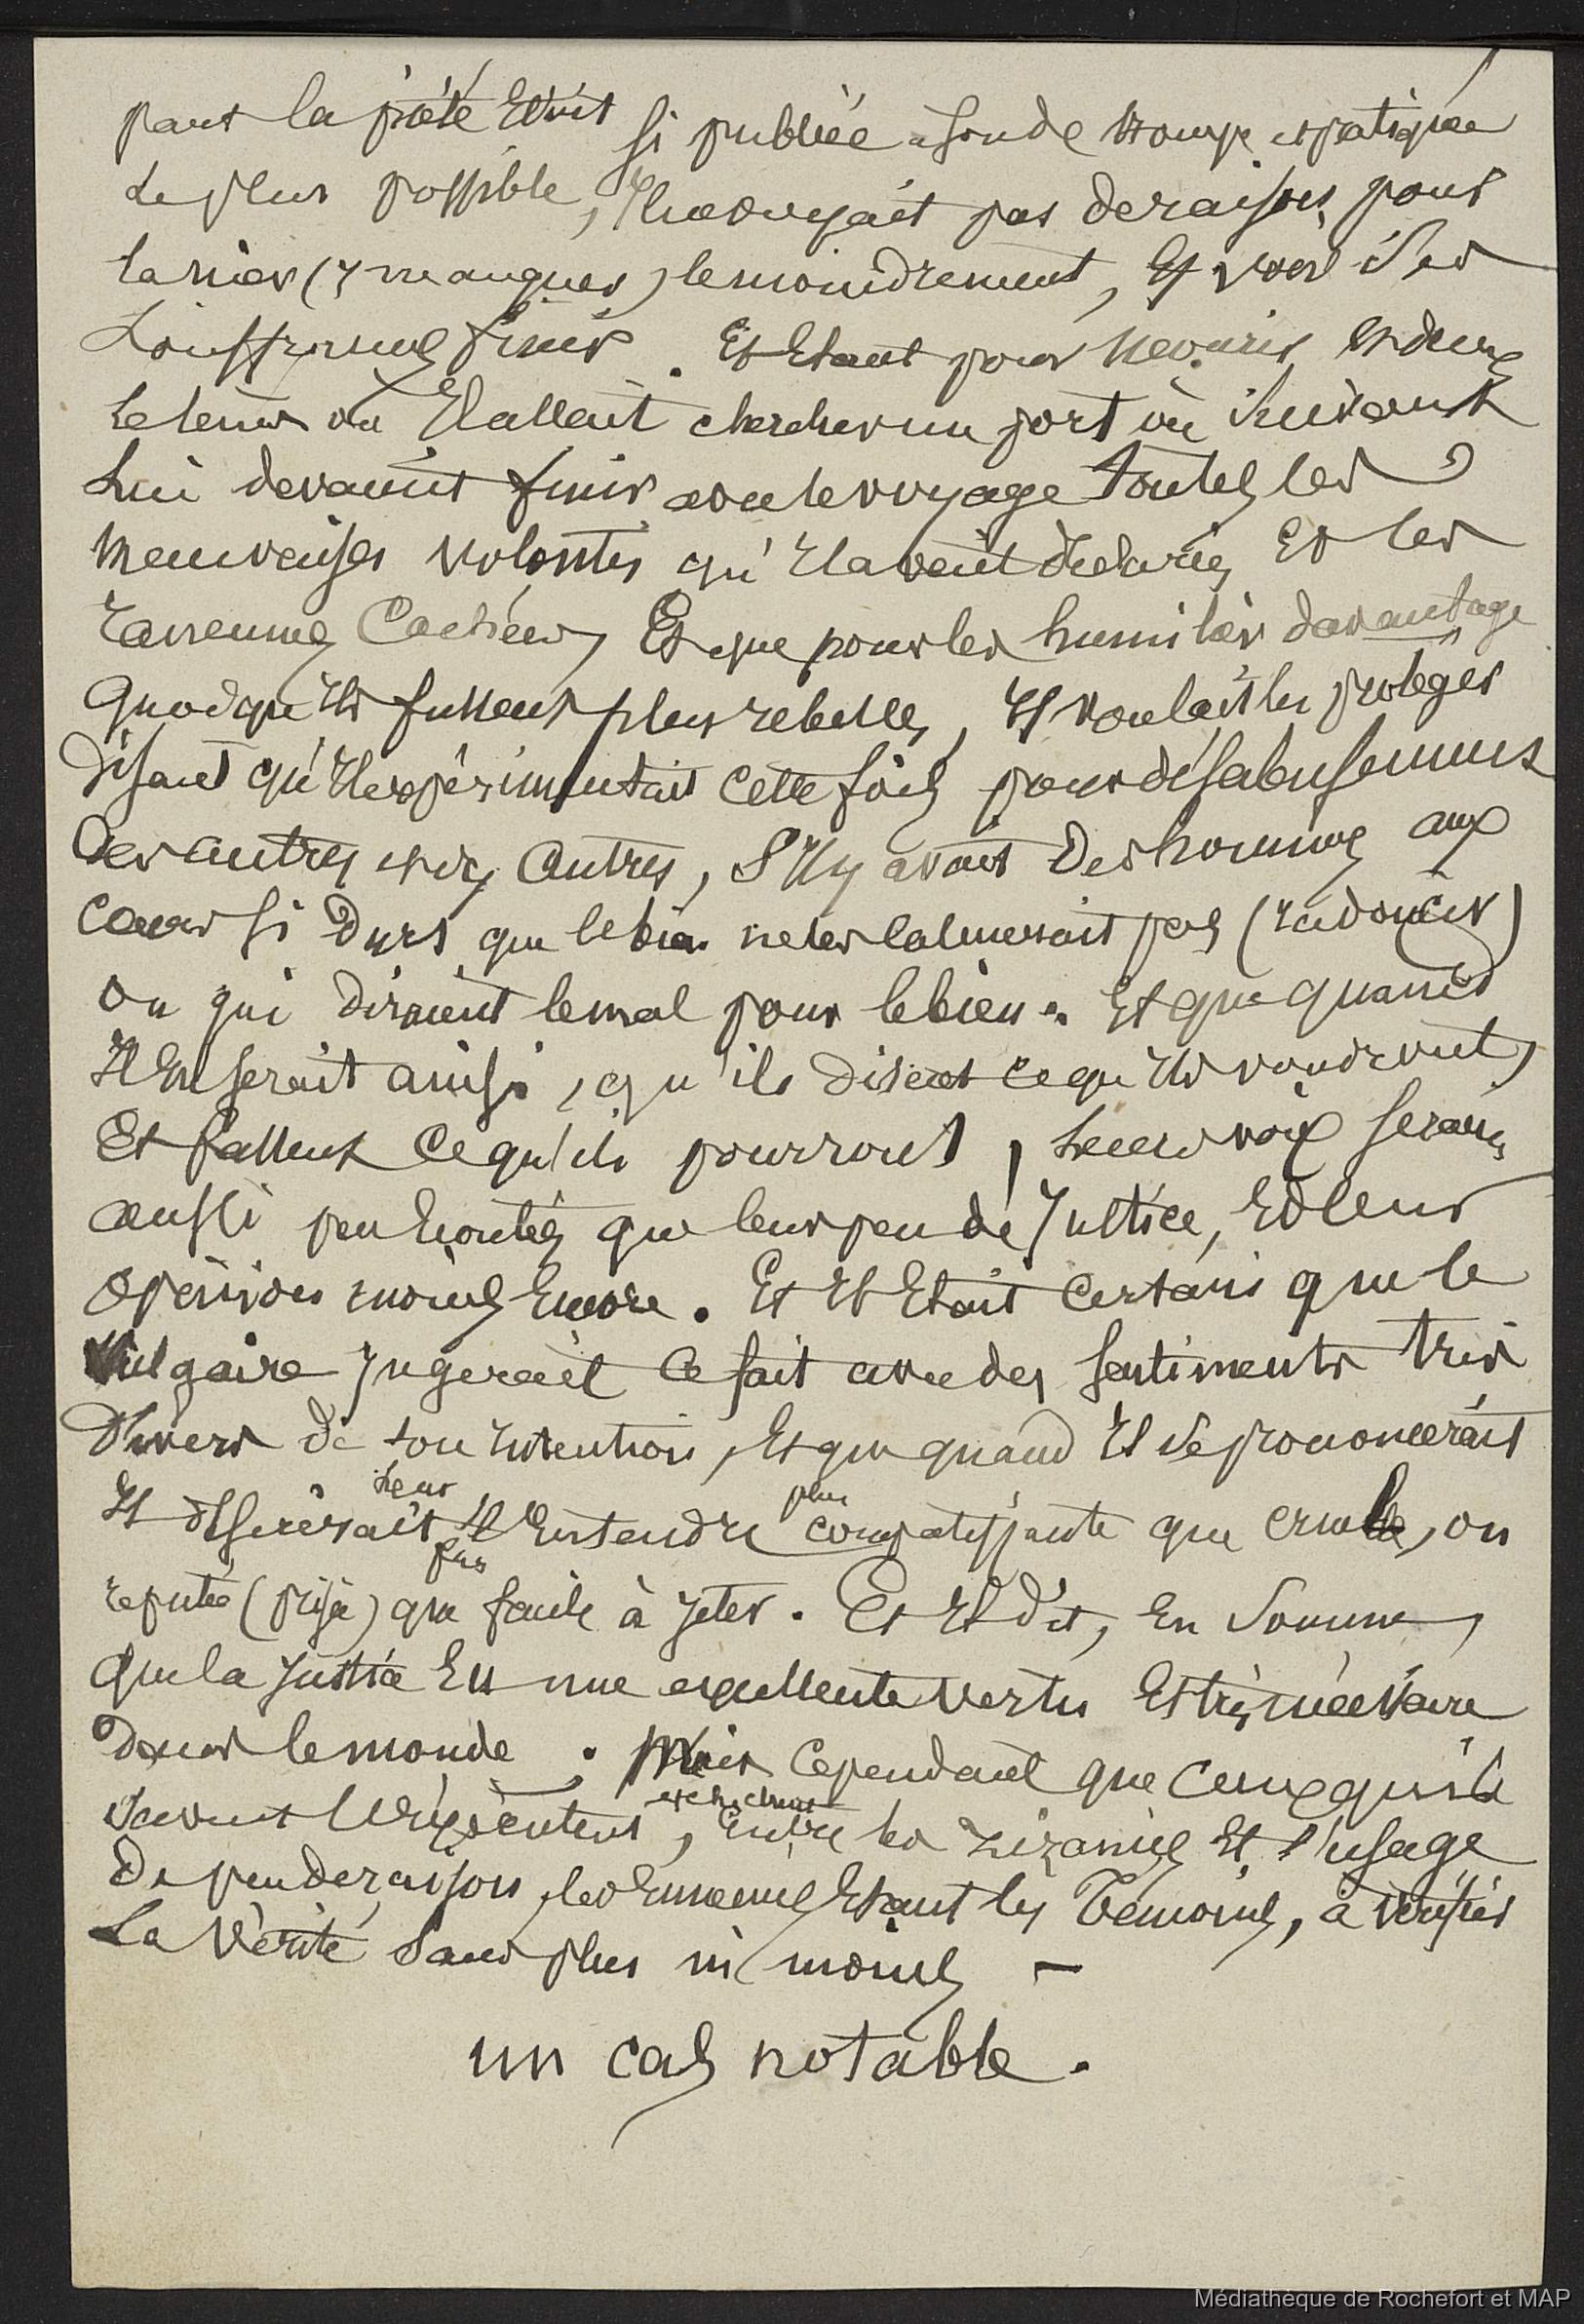 part la piété Etait si publiée à son de trompe et pratiquée
Le plus possible, Il ne voyait pas de raisons pour
la nier (y manquer) le moindrement, Et voir s'es
Souffrances finir. Et Etant pour
le tenir où Il allait chercher un port où suivant
Lui devaient finir avec le voyage toutes les
mauvaises volontés qu'Il avait déclarées Et les
rancunes Cachées, Et que pour les humilier davantage
Quoique Ils fussent plus rebelles, Il voulait les protéger
Disant qu'Il expérimentait cette fois pour
Des autres et dix Autres, S'Il y avait des hommes aux
Cœurs si Durs que le bien ne les calmerait pas (radoucir)
ou qui diraient le mal pour le bien. Et que quand
Il En serait ainsi, qu'ils disent ce que Ils voudront,
Et fassent Ce qu'ils pourront, Leurs voix seraient
aussi peu Ecoutées que leur peu de Justice, Et leur
Opinion moins Encore. Et Il Etait Certain que le
Vulgaire Jugerait Ce fait avec des sentiments très
Divers de son Intention, Et que quand Il se prononcerait
Il désirerait leur l'Entendre plus compatissante que cruelle, ou
réputée plus que facile à Jeter. Et Il dit, En Somme,
Que la Justice Est une excellente vertu Et très nécessaire
Dans le monde. Mais Cependant que Ceux qui la
doivent l'Exécutent, et cherchent Entre les zizanies Et l'usage
De peu de raison, les Ennemis Etant les Témoins, à vérifier
La Vérité Sans plus ni moins —
un cas notable.
Médiathèque de Rochefort et MAP